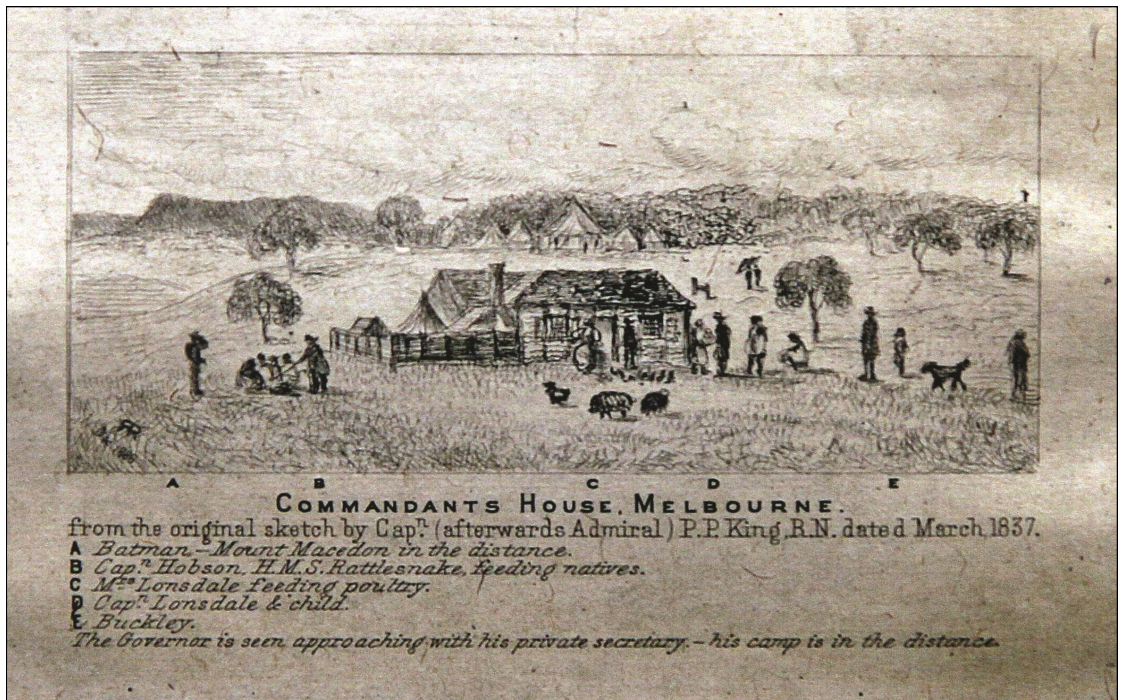 A B C D E
COMMANDANTS HOUSE, MELBOURNE.
from the original sketch by Capn. (afterwards Admiral) P.P. King, R.N. dated March, 1837.
A Batman – Mount Macedon in the distance.
B Capn. Hobson, H.M.S. Rattlesnake, feeding natives.
C Mrs Lonsdale feeding poultry.
D Capn. Lonsdale & child.
E Buckley.
The Governor is seen approaching with his private secretary. – his camp is in the distance.